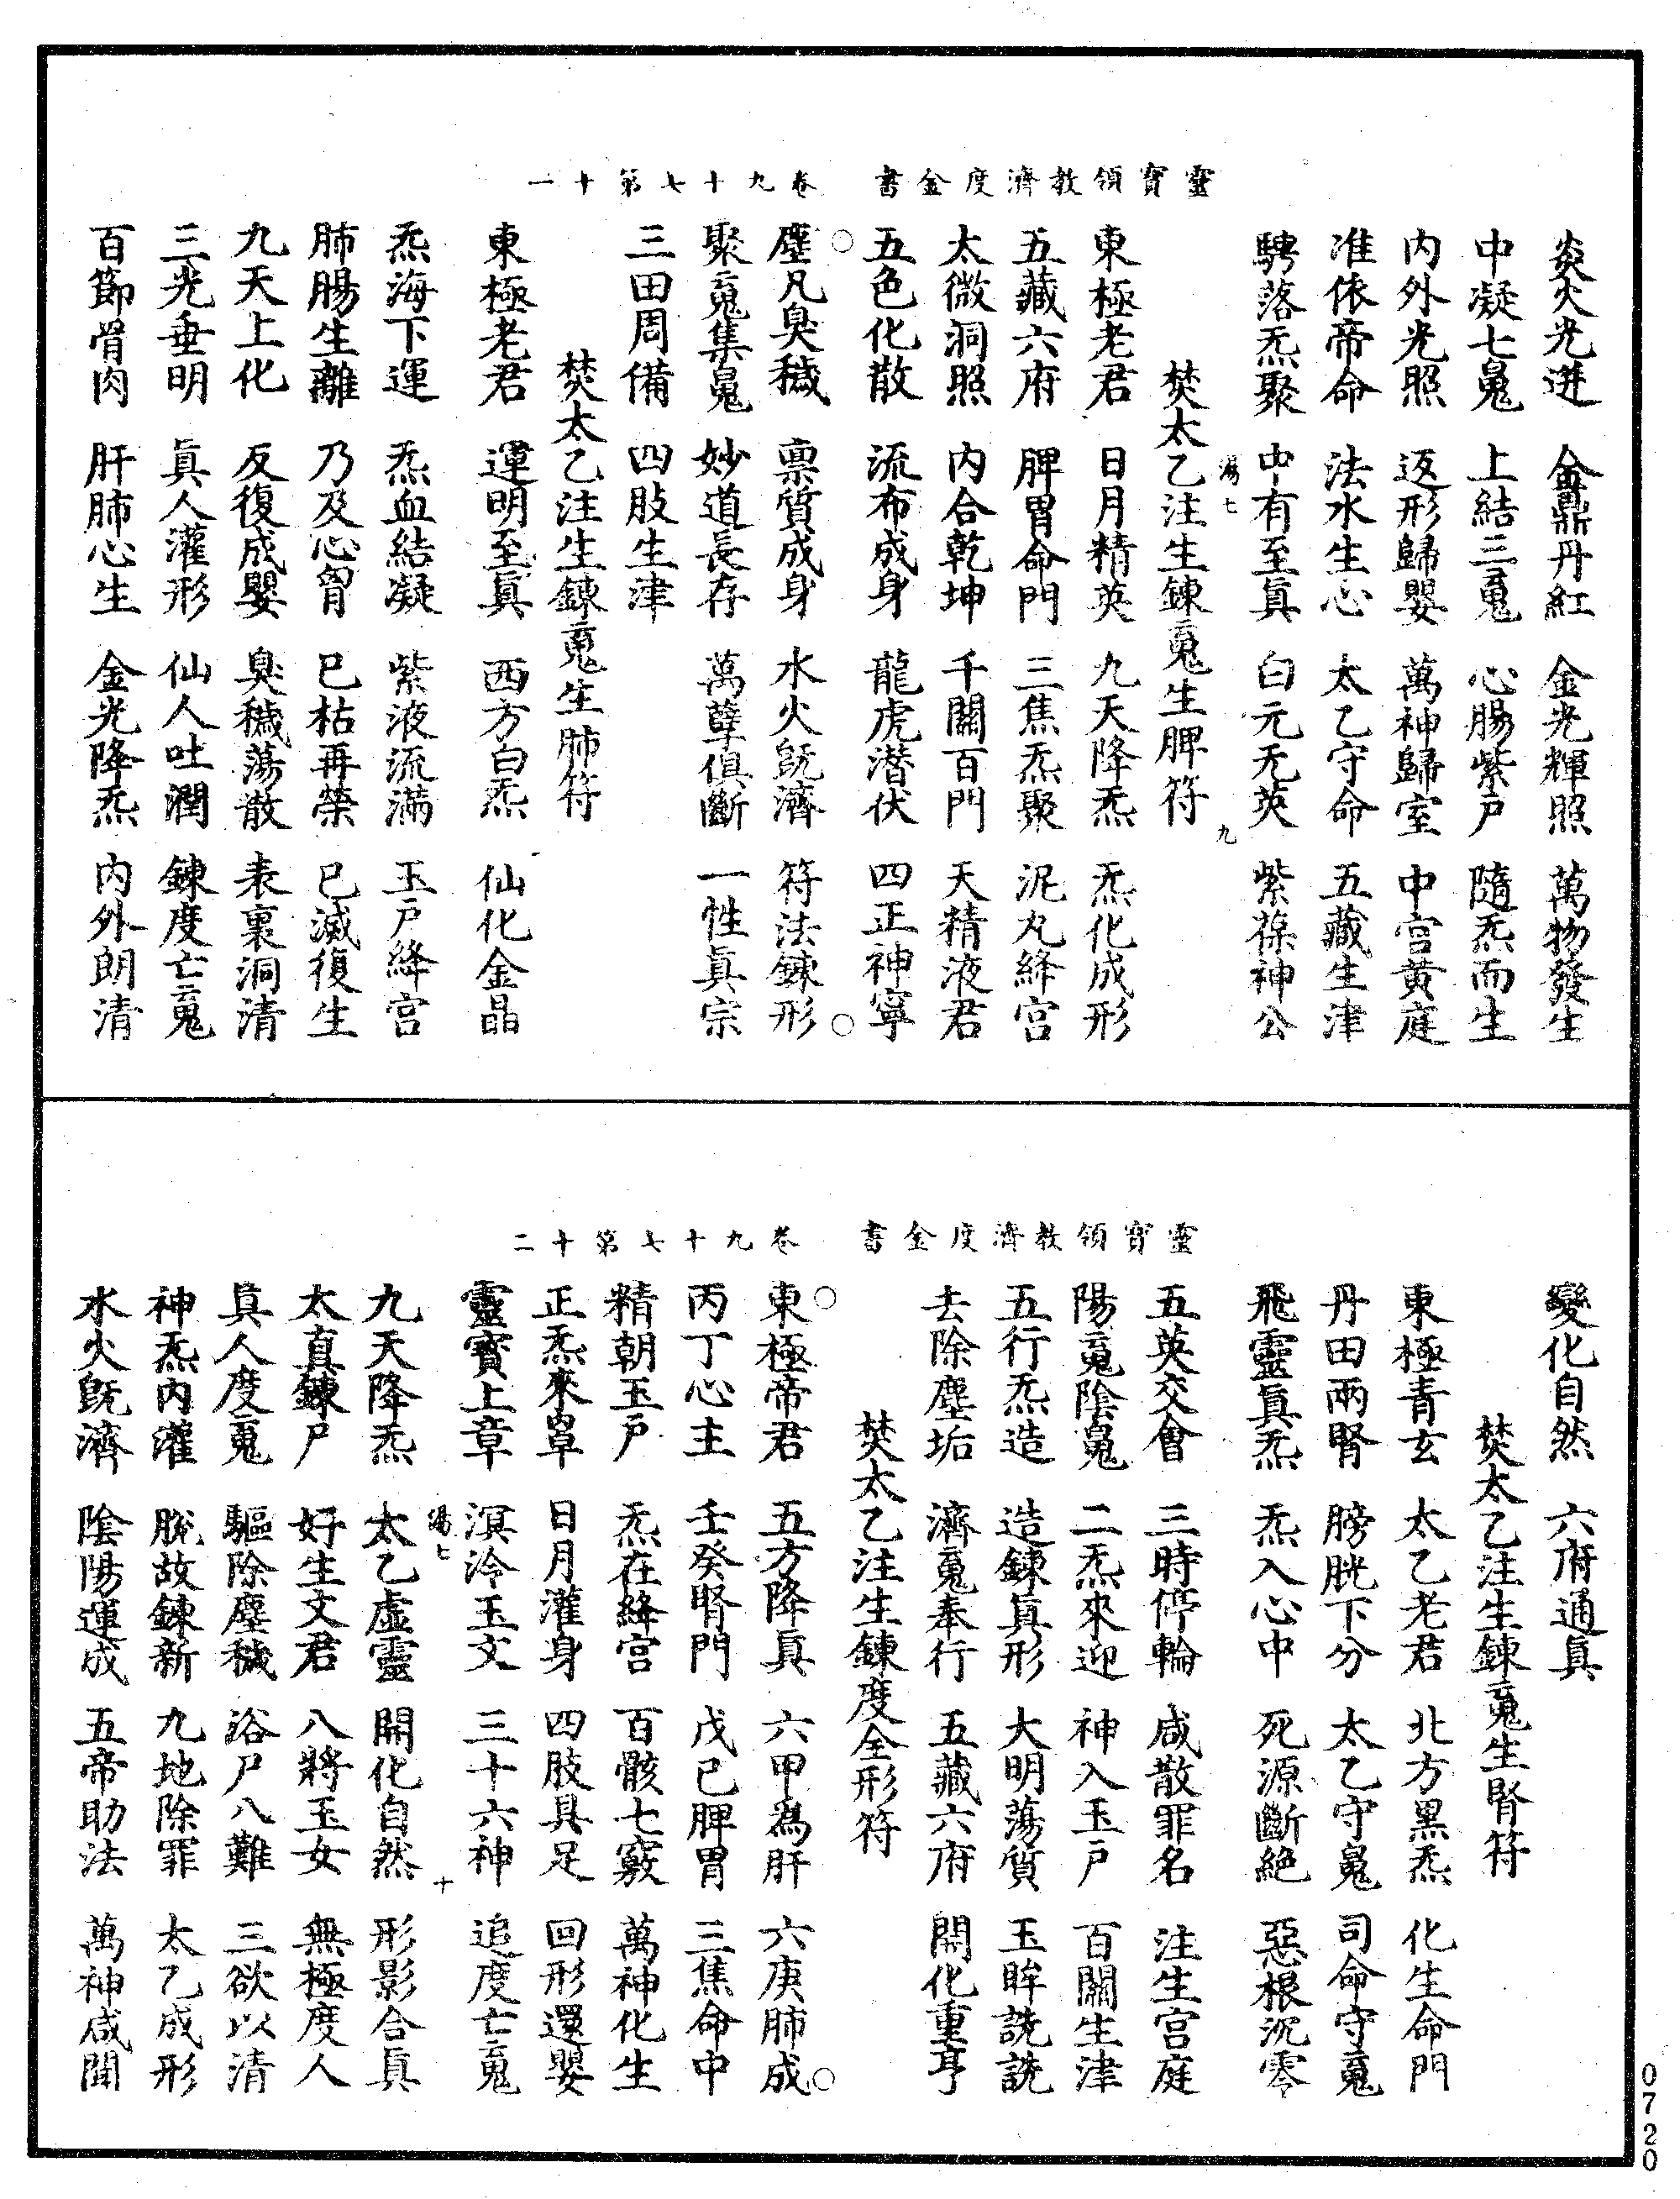 靈寶領教濟度金書　卷九十七第十一
炎火光進　金鼎丹紅　金光輝照　萬物發生
中凝七魄　上結三䰟　心腸紫戶　隨炁而生
內外光照　返形歸嬰　萬神歸室　中宮黃庭
准依帝命　法水生心　太乙守命　五藏生津
騁落炁聚　中有至眞　白元无英　紫葆神公
湯七　九
焚太乙注生鍊䰟生脾符
東極老君　日月精英　九天降炁　炁化成形
五藏六府　脾胃命門　三焦炁聚　泥丸絳宮
太微洞照　內合乾坤　千關百門　天精液君
五色化散　流布成身　龍虎潜伏　四正神寧
塵凡臭穢　禀質成身　水火旣濟　符法鍊形
聚䰟集魄　妙道長存　萬孽俱斷　一性眞宗
三田周備　四肢生津
焚太乙注生鍊䰟生肺符
東極老君　運明至眞　西方白炁　仙化金晶
炁海下運　炁血結凝　紫液流滿　玉戶絳宮
肺腸生離　乃及心胷　已枯再榮　已滅復生
九天上化　反復成嬰　臭穢蕩散　表裏洞清
三光垂明　眞人灌形　仙人吐潤　鍊度亡䰟
百節骨肉　肝肺心生　金光降炁　內外朗清
靈寶領教濟度金書　卷九十七第十二
變化自然　六府通眞
焚太乙注生鍊䰟生腎符
東極青玄　太乙老君　北方黑炁　化生命門
丹田兩腎　膀胱下分　太乙守魄　司命守䰟
飛靈眞炁　炁入心中　死源斷絕　惡根沉零
五英交會　三時停輪　咸散罪名　注生宮庭
陽䰟陰魄　二炁來迎　神入玉戶　百關生津
五行炁造　造鍊眞形　大明蕩質　玉眸詵詵
去除塵垢　濟䰟奉行　五藏六府　開化重亨
焚太乙注生鍊度全形符
東極帝君　五方降眞　六甲爲肝　六庚肺成
丙丁心主　壬癸腎門　戊己脾胃　三焦命中
精朝玉戶　炁在絳宮　百骸七竅　萬神化生
正炁來皐　日月灌身　四肢具足　回形還嬰
靈寶上章　溟泠玉文　三十六神　追度亡䰟
湯七　十
九天降炁　太乙虛靈　開化自然　形影合眞
太真鍊尸　好生文君　八將玉女　無極度人
眞人度䰟　驅除塵穢　浴尸八難　三欲以清
神炁內灌　脫故鍊新　九地除罪　太乙成形
水火旣濟　陰陽運成　五帝助法　萬神咸聞
0720